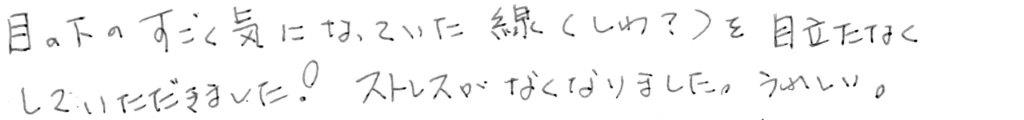 目の下のすごく気になっていた線(しわ?)を目立たなく
していただきました! ストレスがなくなりました。うれしい。